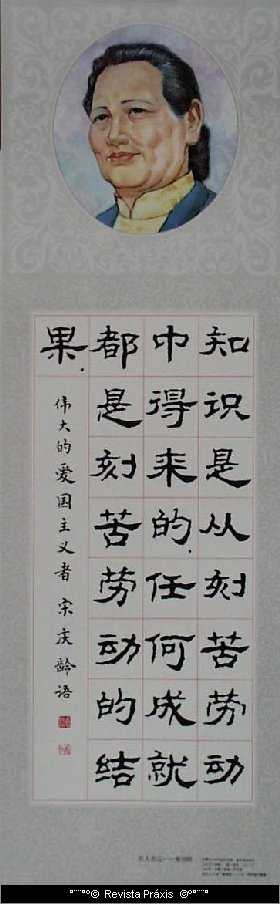 知识是从刻苦劳动
中得来的.任何成就
都是刻苦劳动的结
果.
伟大的爱国主义者 宋庆龄语
© Revista Práxis @